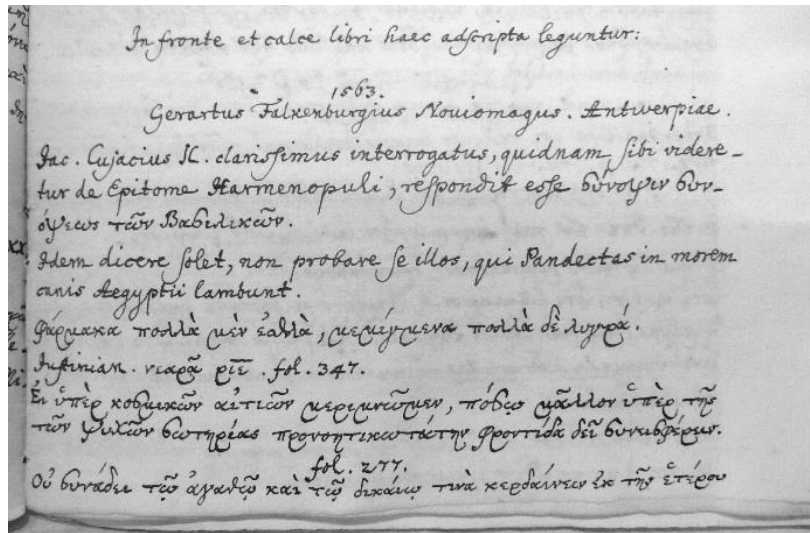 In fronte et calce libri haec adscripta leguntur:
1563.
Gerartus Falkenburgius Noviomagus. Antwerpiae.
Jac. Cujacius JC. clarissimus interrogatus, quidnam sibi videre-
tur de Epitome Harmenopuli, respondit esse σύνοψιν συν-
όψεως τῶν Βασιλικῶν.
Idem dicere solet, non probare se illos, qui Pandectas in morem
canis Aegyptii lambunt.
Φάρμακα πολλὰ μὲν ἐσθλὰ, μεμιγμένα πολλὰ δὲ λυγρά.
Justinian. νεαρᾷ ριε. fol. 347.
Εἰ ὑπὲρ κοσμικῶν αἰτιῶν μεριμνῶμεν, πόσῳ μᾶλλον ὑπὲρ τῆς
τῶν ψυχῶν σωτηρίας προνοητικωτάτην φροντίδα δεῖ συνεισφέρειν.
fol. 277.
Οὐ συνᾴδει τῷ ἀγαθῷ καὶ τῷ δικαίῳ τινὰ κερδαίνειν ἐκ τῆς ἑτέρου